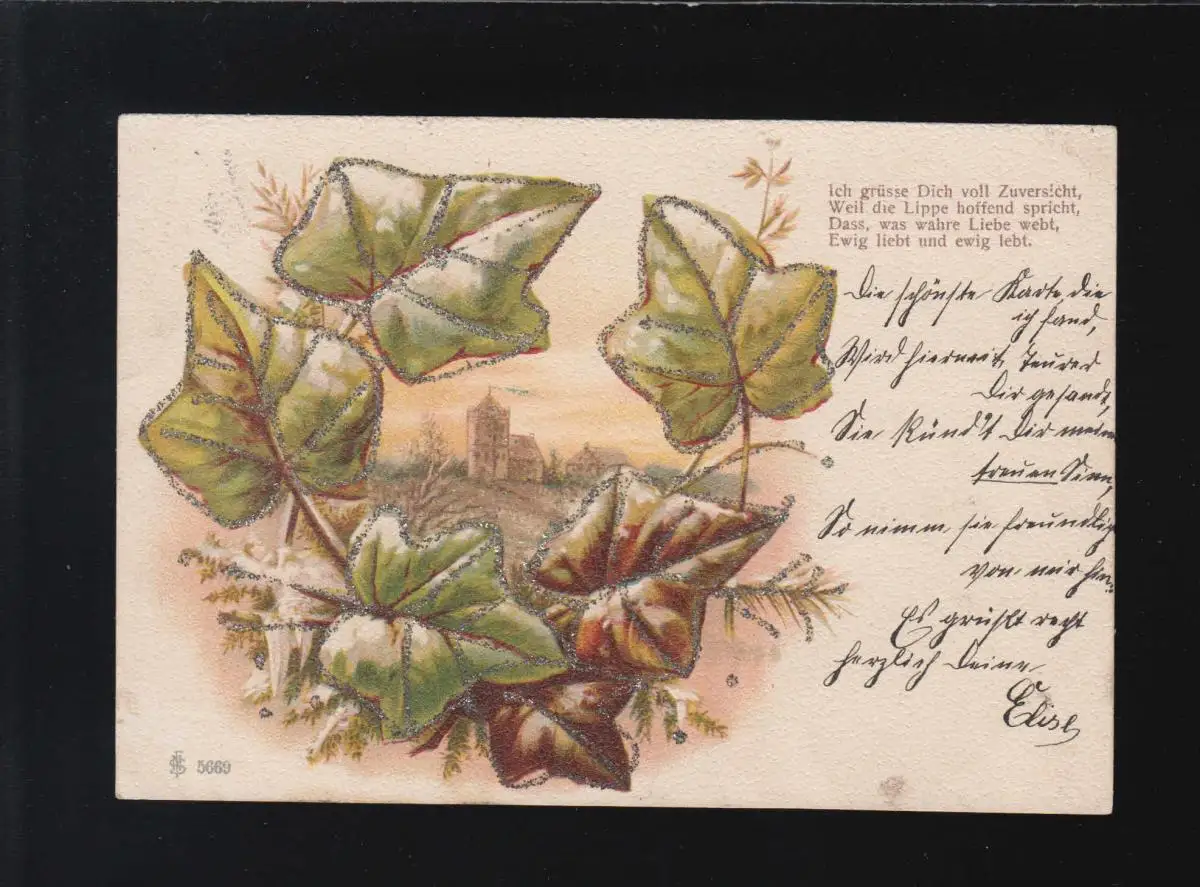 Ich grüsse Dich voll Zuversicht,
Weil die Lippe hoffend spricht,
Dass, was wahre Liebe webt,
Ewig liebt und ewig lebt.
Die schönste Karte, die
ich fand,
Wird hiermit, Teurer
Dir gesandt,
Sie künd't Dir meinen
treuen Sinn,
So nimm sie freundlich
von mir hin.
Es grüßt recht
herzlich Deine
Elise
5669